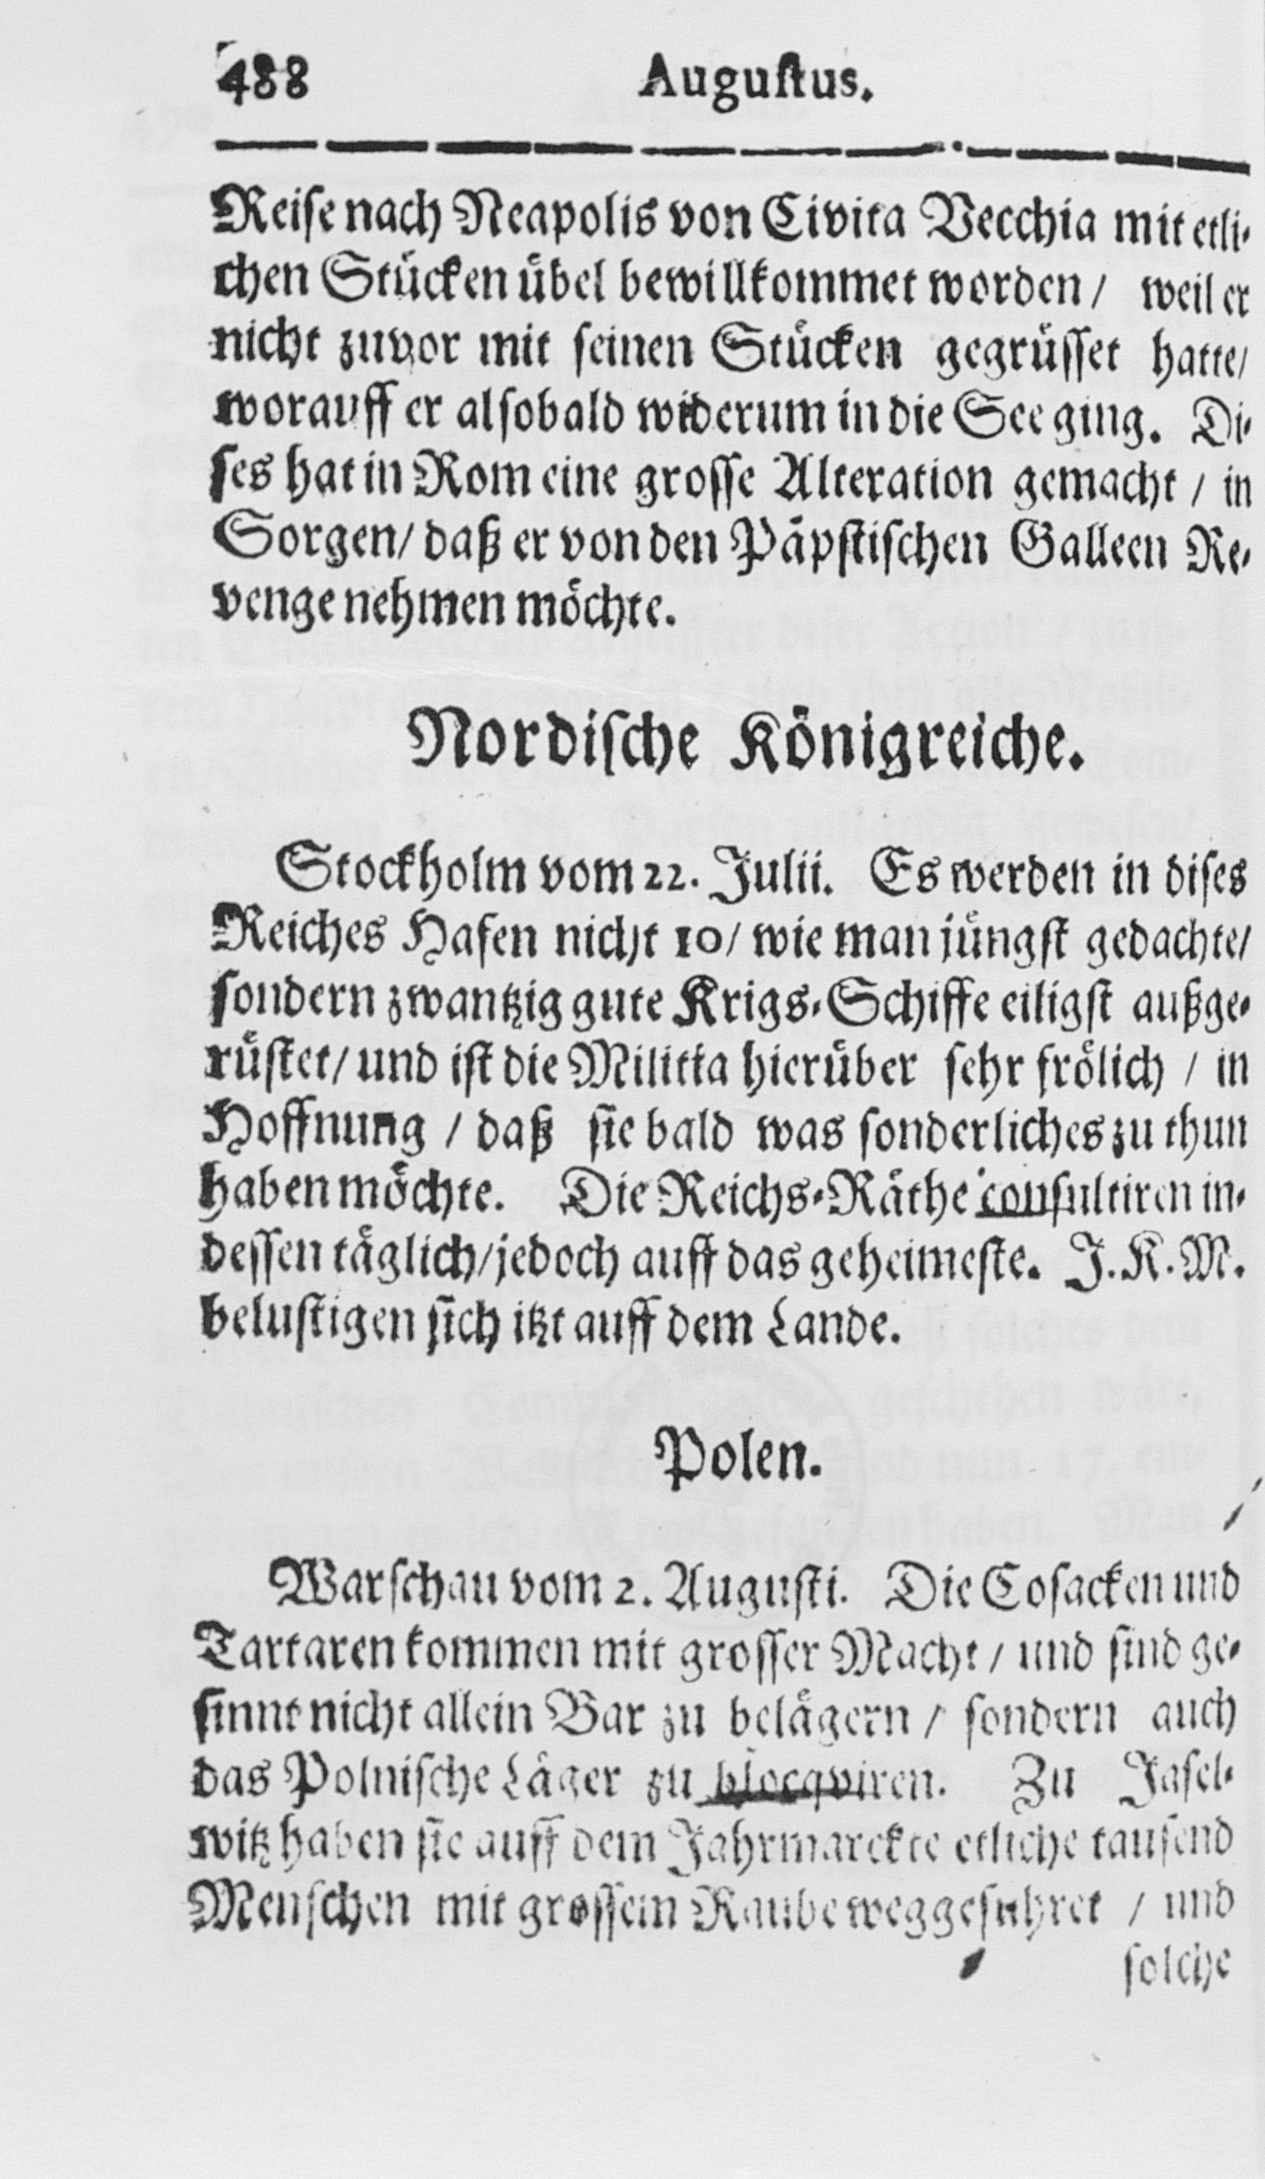 488 Augustus.
Reise nach Neapolis von Civita Vecchia mit etli-
chen Stücken übel bewillkommet worden / weil er
nicht zuvor mit seinen Stücken gegrüsset hatte/
worauff er alsobald widerum in die See ging. Di-
ses hat in Rom eine grosse Alteration gemacht / in
Sorgen/ daß er von den Päpstischen Galleen Re-
venge nehmen möchte.
Nordische Königreiche.
Stockholm vom 22. Julii. Es werden in dises
Reiches Hafen nicht 10/ wie man jüngst gedachte/
sondern zwantzig gute Krigs-Schiffe eiligst außge-
rüstet/ und ist die Militia hierüber sehr frölich / in
Hoffnung / daß sie bald was sonderliches zu thun
haben möchte. Die Reichs-Räthe consultiren in-
dessen täglich/ jedoch auff das geheimeste. J. K. M.
belustigen sich itzt auff dem Lande.
Polen.
Warschau vom 2. Augusti. Die Cosacken und
Tartaren kommen mit grosser Macht / und sind ge-
sinnt nicht allein Bar zu belägern / sondern auch
das Polnische Läger zu blocqviren. Zu Jasel-
witz haben sie auff dem Jahrmarckte etliche tausend
Menschen mit grossem Raube weggefuhret / und
solche